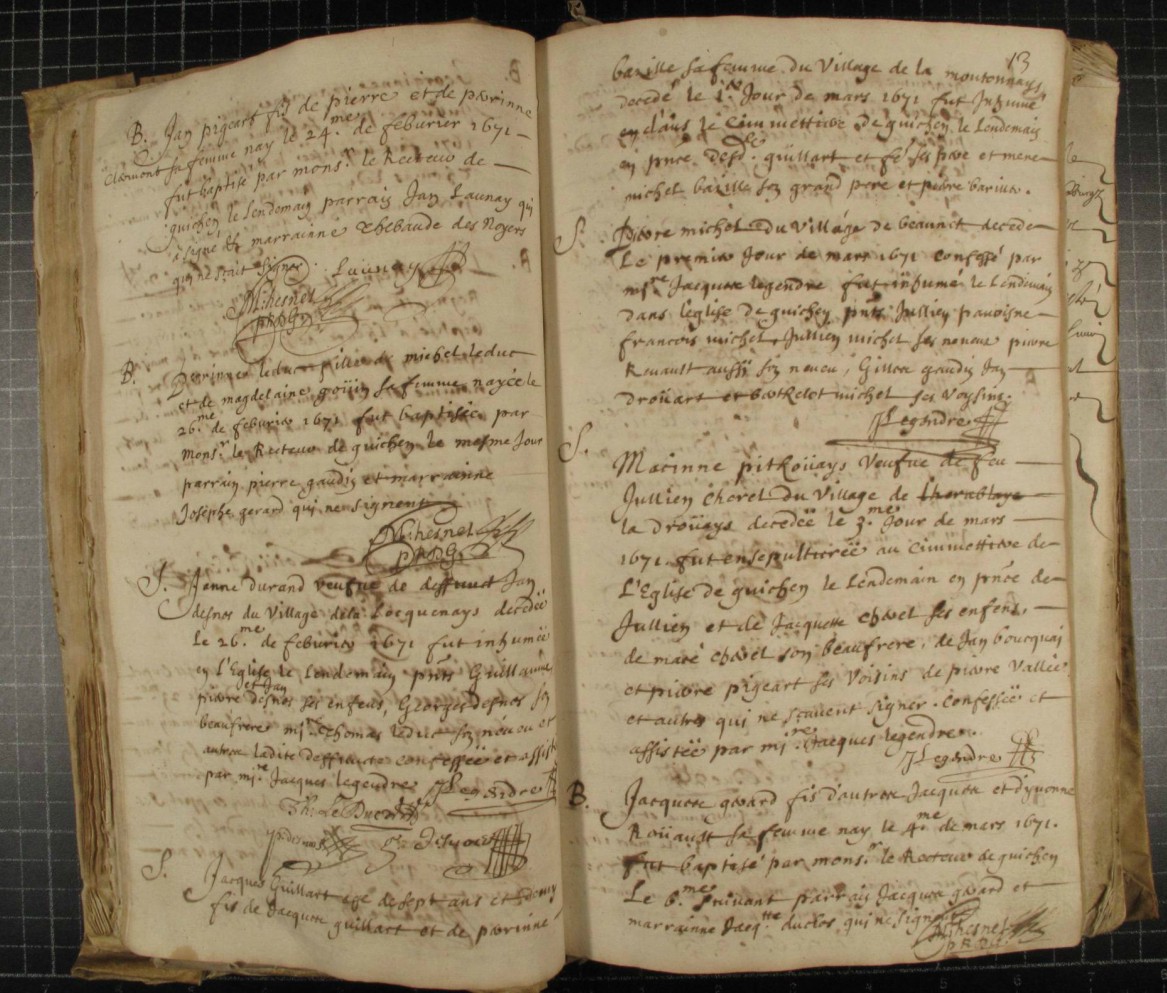 B. Jan pigeart fis de pierre et de perrinne
Clermont sa femme nay le 24.me de feburier 1671
fut baptisé par mons.r le Recteur de
guichen le lendemain parrain Jan Launay qui
a signé et marrainne Thebaude des Noyers
qui ne scait signer. Launay
M. hesnel
B. Perrinne leduc fille de michel leduc
et de magdelaine goüin sa femme nayée le
26.me de feburier 1671 fut baptisée par
mons.r le Recteur de guichen le mesme Jour
parrain pierre gaudin et marrainne
Josephe gerard qui ne signent
M. hesnel
S. Janne durand veufue de deffunct Jan
desnos du Village de la Locquenays decedëe
Le 26.me de feburier 1671 fut inhumëe
en l'Eglise le lendemain pnts Guillaume
et Jan
pierre desnos ses enfens, Georges desnos son
beaufrere mi.re Thomas leduc son neueu et
autres ladite deffuncte confessëe et assistëe
par mi.re Jacques legendre JLegendre
Th: Le Duc
S. Jacques Guillart agé de sept ans et demy
fis de Jacques guillart et de perrinne
13
bazille sa femme du Village de la moutonnays
decedé le 1.er Jour de mars 1671 fut Inhumé
en dans le Cimmettiere de guichen le Lendemain
en pnce desd. guillart et fe ses pere et mere
michel bazille son grand pere et pierre
S. Pierre michel du Village de beaunit decede
Le premier Jour de mars 1671 confessé par
mi.re Jacques legendre fut inhumé le lendemain
dans l'eglise de guichen pnts Jullien pauoisne
francois michel Jullien michel ses neueus pierre
Rouault aussi son neueu, Gilles gaudin Jan
Droüart et barthelot michel ses Voysins.
JLegendre
S. Macinne pitkoüays Veufue de feu
Jullien Chorel du Village de
la Droüays decedëe le 3.me Jour de mars
1671. fut ensepulturëe au Cimmettiere de
L'Eglise de guichen le Lendemain en pnce de
Jullien et de Jacquette chorel ses enfens,
de macé chorel son beaufrere, de Jan boucquay
et pierre pigeart ses Voisins de pierre Vallée
et autres qui ne scauent signer. Confessëe et
assistëe par mi.re Jacques legendre.
JLegendre
B. Jacques gerard fis d'autre Jacques et d'yuonne
Roüault sa femme nay le 4.me de mars 1671.
fut baptisé par mons.r le Recteur de guichen
Le 6.me suiuant parrain Jacques gerard et
marrainne Jacq.tte duclos, qui ne signent
M. hesnel